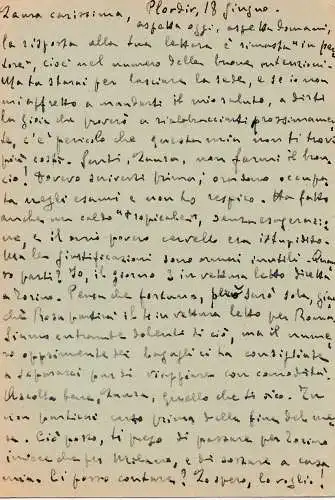 Laura carissima, Plordiz, 18 giugno.
aspetta oggi, aspetta domani,
la risposta alla tua lettera è rimasta "in pec
tore", cioè nel numero delle buone intenzioni.
Ma tu starai per lasciare la sede, e se io non
mi affretto a mandarti il mio saluto, a dirti
la gioia che proverò a riabbracciarti prossimamen
te, c'è pericolo che questa mia non ti trovi
più costì. Senti, Laura, non farmi il bron
cio! Dovevo scriverti prima, ma sono occupa
ta negli esami e non ho respiro. Ha fatto
anche un caldo "tropicale", senza esagerazio
ne, e il mio povero cervello era istupidito.
Ma le giustificazioni sono ormai inutili. Quan
do parti? Io, il giorno 3 in vettura letto diretta
a Torino. Pensa che fortuna, però sarò sola, giac
chè Rosa partirà il in vettura letto per Roma.
Siamo entrambe dolenti di ciò, ma il nume
ro opprimente dei bagagli ci ha consigliate
a separarci pur di viaggiare con comodità.
Ascolta bene, Laura, quello che ti dico. Tu
non partirai certo prima della fine del me
se. Ciò posto, ti prego di passare per Torino
invece che per Milano, e di sostare a casa
mia. Ci posso contare? Lo spero, lo voglio!